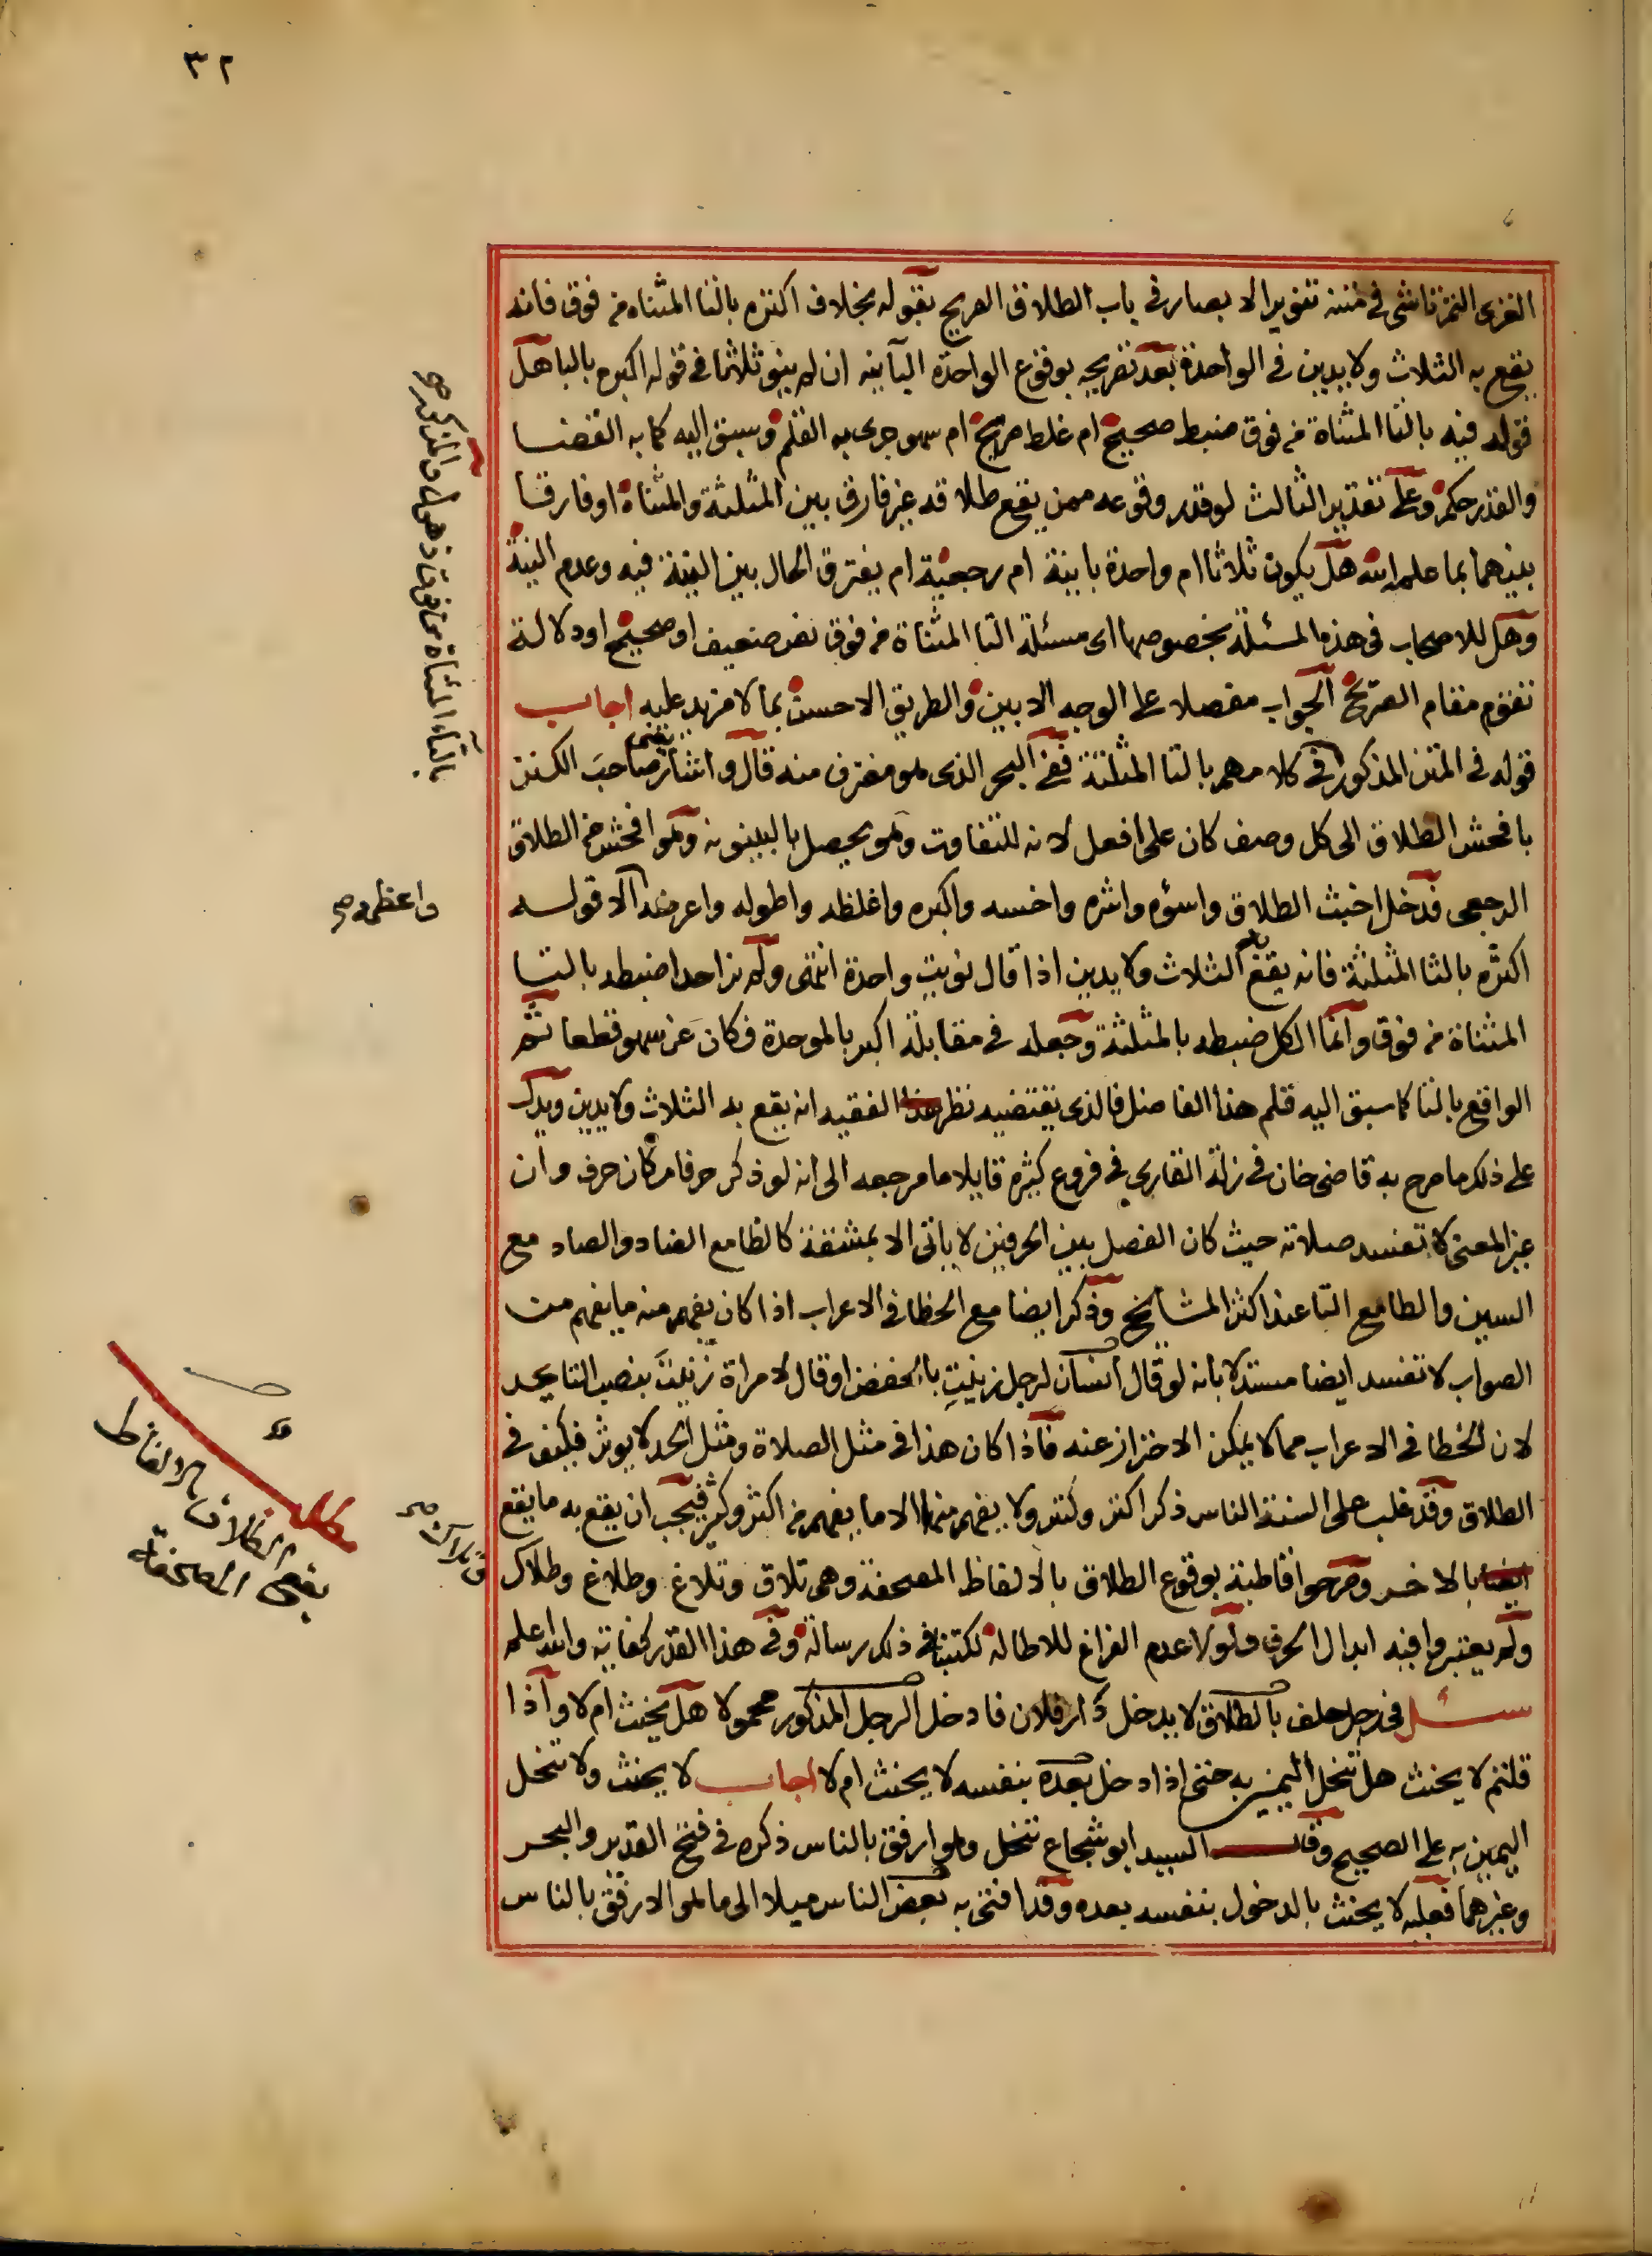 ٣٢
الغزى التمرتاشى فى متنه تنوير الابصار فى باب الطلاق الصريح بقوله بخلاف اكتره بالتا المثناه من فوق فانه
يقع به الثلاث ولا يدين فى الواحدة بعد تصريحه بوقوع الواحدة البآينه ان لم ينو ثلاثا فى قوله اكبره بالبا هل
قوله فيه بالتا المثناة من فوق ضبط صحيح ام غلط صريح ام سهو جرى به القلم وسبق اليه كما به القضا
والقدر حكم وعلى تقدير الثالث لو قدر وقوعه ممن يقع طلاقه غير فارق بين المثلثة والمثناة او فارقا
بينهما بما علمه الله هل يكون ثلاثا ام واحدة باينة ام رجعية ام يفترق الحال بين النية فيه وعدم النية
وهل للاصحاب فى هذه المسئلة بخصوصها اى مسئلة التا المثناة من فوق نص ضعيف او صحيح او دلالة
تقوم مقام الصريح الجواب مفصلا على الوجه الابين والطريق الاحسن بما لا مزيد عليه اجاب
قوله فى المتن المذكور فى كلامهم بالثا المثلثة ففى البحر الذى هو مغترف منه قال واشار صاحب الكنز
بافحش الطلاق الى كل وصف كان على افعل لانه للتفاوت وهو يحصل بالبينونه وهو افحش من الطلاق
الرجعى فدخل اخبث الطلاق واسؤه واشره واخسه واكبره واغلظه واطوله واعرضه الا قوله
واعظمه صح
اكثره بالثا المثلثة فانه يقع به الثلاث ولا يدين اذا قال نويت واحدة انتهى ولم نر احدا ضبطه بالتا
المثناة من فوق وانما الكل ضبطه بالمثلثة وجعله فى مقابلة اكبر بالموحدة فكان عن سهو قطعا ثم
الواقع بالتا كما سبق اليه قلم هذا الفاضل فالذى يقتضيه نظر الفقيه انه يقع به الثلاث ولا يدين ويدل
على ذلك ما صرح به قاضى خان فى زلة القارى فى فروع كثيرة قايلا ما مرجعه الى انه لو ذكر حرفا مكان حرف وان
غير المعنى لا تفسد صلاته حيث كان الفصل بين الحرفين لا ياتى الا بمشقة كالظا مع الضاد والصاد مع
السين والطا مع التا عند اكثر المشايخ وذكر ايضا مع الخطا فى الاعراب اذا كان يفهم منه ما يفهم من
الصواب لا تفسد ايضا مستدلا بانه لو قال انسان لرجل زنيتِ بالخفض او قال لامراة زنيتَ بنصب التا يحد
لان الخطا فى الاعراب مما لا يمكن الاحتراز عنه فاذا كان هذا فى مثل الصلاة ومثل الحد لا يوثر فكيف فى
الطلاق وقد غلب على السنة الناس ذكر اكتر وكتر ولا يفهم منها الا ما يفهم من اكثر وكثر فيجب ان يقع به ما يقع
بالاخر وصرحوا قاطبة بوقوع الطلاق بالالفاظ المصحفة وهى تلاق وتلاغ وطلاغ وطلاك
وتلاك صح
ولم يعتبروا فيه ابدال الحرف ولولا عدم الفراغ للاطالة لكتبنا فى ذلك رسالة وفى هذا القدر كفاية والله اعلم
سئل فى رجل حلف بالطلاق لا يدخل دار فلان فادخل الرجل المذكور محمولا هل يحنث ام لا واذا
قلتم لا يحنث هل تنحل اليمين به حتى اذا دخل بعده بنفسه لا يحنث ام لا اجاب لا يحنث ولا تنحل
اليمين به على الصحيح وقال السيد ابو شجاع تنحل وهو ارفق بالناس ذكره فى فتح القدير والبحر
وغيرهما فعليه لا يحنث بالدخول بنفسه بعده وقد افتى به بعض الناس ميلا الى ما هو الارفق بالناس
مطلب
يقع الطلاق بالالفاظ
المصحفة